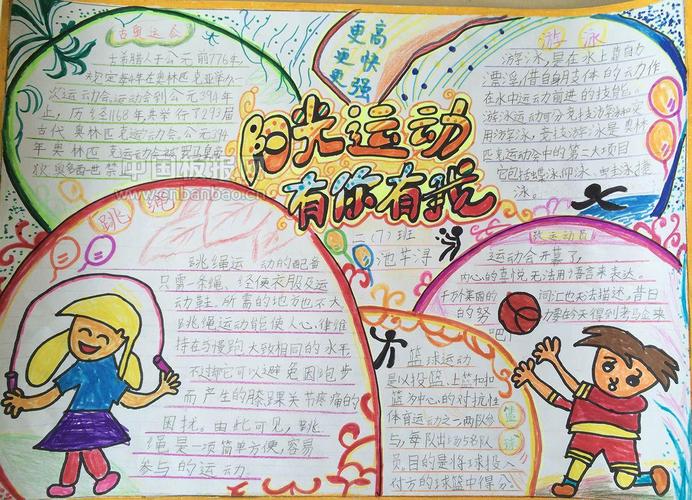 古奥运会
古希腊人于公元前776年
规定每4年在奥林匹克举办一
次运动会.运动会到公元394年
止,历经1168年.共举行了293届
古代奥林匹克运动会.公元394
年奥林匹克运动会被罗马皇帝
更高
更快
更强
阳光运动
有你有我
二(7)班
游泳
游泳,是在水上靠自
漂浮,借自身肢体的动作
在水中运动前进的技能。
游泳运动可分竞技游泳和实
用游泳。竞技游泳是奥林
匹克运动会中的第二大项目
它包括蝶泳仰泳、蛙泳
泳。
跳绳
跳绳运动的配备
只需一条绳、轻便衣服及运
动鞋.所需的地方也不大
跳绳运动能使人心
持在与慢跑大致相同的水平
不过它可以避免因跑步
而产生的膝踝关节疼痛的
困扰。由此可见,跳
绳是一项简单方便,容易
参与的运动.
致运动员
运动会开幕了,
内心的喜悦无法用语言来表达。
千万美丽的词汇也无法描述,昔日
的努力要的今天得到
吧!
篮球
篮球运动
是以投篮、上篮和扣
篮为中心的对抗性
体育运动之一.两队参
与,每队出场5名队
员.目的是将球投入
对方的球篮中得分
中国板报网
www.cnbanbao.cn